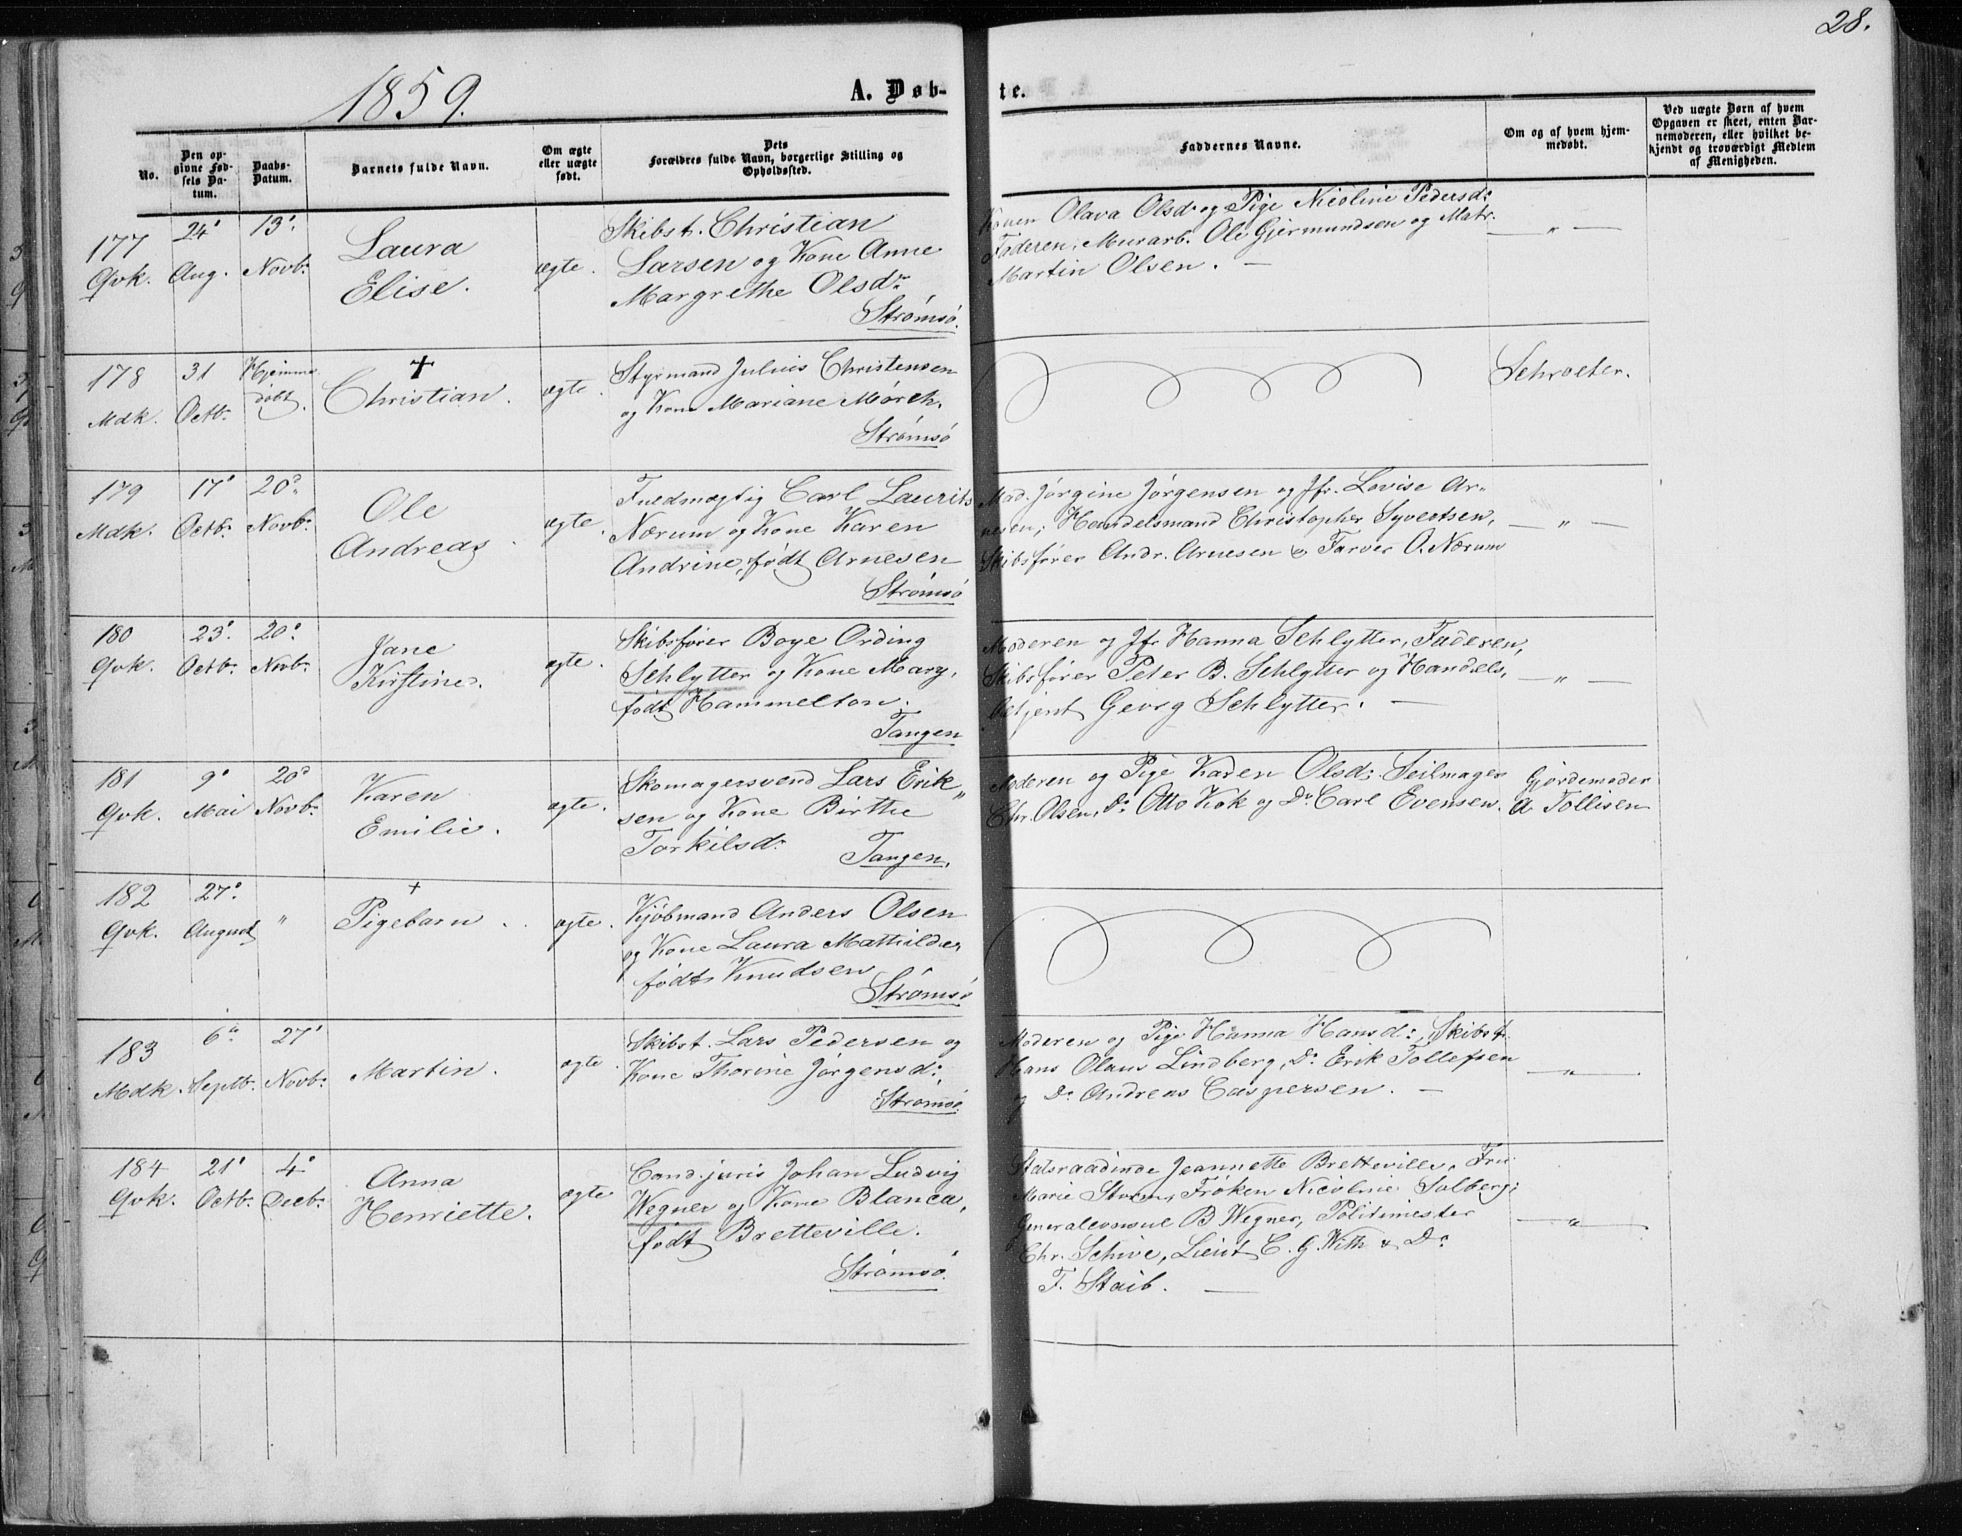 28.
1859.
A. Døb-
te.
No.
Den op-
givne Fød-
sels Da-
tum.
Daabs-
Datum.
Barnets fulde Navn.
Om ægte
eller uægte
født.
Dets
Forældres fulde Navn, borgerlige Stilling og
Opholdssted.
Faddernes Navne.
Om og af hvem hjem-
medøbt.
Ved uægte Børn af hvem
Opgaven er skeet, enten Bar-
nemoderen, eller hvilket be-
kjendt og troværdigt Medlem
af Menigheden.
177
Qvk.
24de
Aug.
13de
Novbr.
Laura
Elise.
ægte.
Skibst. Christian
Larsen og Kone Anne
Margrethe Olsdr.
Strømsö.
Konen Olava Olsdr og Pige Nicoline Pedersdr
Faderen, Murarb. Ole Gjermundsen og Matr.
Martin Olsen. —
— " —
178
Mdk.
31
Octbr.
Hjemme
döbt.
+
Christian.
ægte.
Styrmand Julius Christensen
og Kone Mariane Mörch.
Strømsö
Schroeter.
179
Mdk.
17de
Octbr.
20de
Novbr.
Ole
Andreas.
ægte.
Fuldmægtig Carl Laurits
Nærum og Kone Karen
Andrine, födt Arnesen
Strømsö
Mad. Jörgine Jörgensen og Jfr. Lovise Ar-
nesen; Handelsmand Christopher Syvertsen,
Skibsförer Andr. Arnesen & Farver O. Nærum
— " —
180
Qvk.
23de
Octbr.
20de
Novbr.
Jane
Kirstine.
ægte.
Skibsförer Boye Ording
Schlytter og Kone Mary,
födt Hammelton.
Tangen
Moderen og Jfr Hanna Schlytter, Faderen,
Skibsförer Peter B. Schlytter og Handels-
betjent Georg Schlytter. —
— " —
181
Qvk.
9de
Mai
20de
Novbr.
Karen
Emilie.
ægte.
Skomagersvend Lars Erik-
sen og Kone Birthe
Torkilsdr
Tangen.
Moderen og Pige Karen Olsdr. Seilmager
Chr. Olsen, Do Otto Kok og Do Carl Evensen.
Gjordemoder
A Tollisen
182
Qvk.
27de
August
"
+
Pigebarn.
ægte.
Kjöbmand Anders Olsen
og Kone Laura Mathilde,
födt Knudsen
Strømsö
183
Mdk.
6te
Septbr.
27de
Novbr.
Martin.
ægte.
Skibst. Lars Pedersen og
Kone Thorine Jörgensdr.
Strømsö
Moderen og Pige Hanna Hansdr; Skibst.
Hans Olaus Lindberg, Do Erik Tollefsen
og Do Andreas Caspersen. —
— " —
184
Qvk.
21de
Octbr.
4de
Decbr.
Anna
Henriette.
ægte
Cand. juris Johan Ludvig
Wegner og Kone Blanca,
födt Bretteville.
Strømsö.
Statsraadinde Jeannette Bretteville, Fru
Marie Storm, Fröken Nicoline Solberg;
Generalconsul B Wegner, Politimester
Chr. Schive, Lieut C. G. With & Do
F. Staib. —
— " —